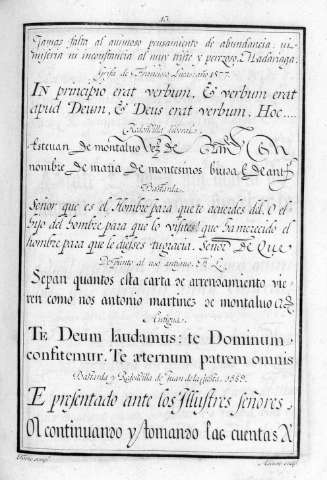 13.
Jamas falta al animoso pensamiento de abundancia: ni
miseria ni inconstancia al muy triste y perezoso. Madariaga.
Grifa de Francisco Lucas año 1577.
IN principio erat verbum, & verbum erat
apud Deum, & Deus erat verbum. Hoc....
Redondilla liberal.
Estevan de montalvo
nombre de maria de montesinos
Bastarda.
Señor que es el Hombre para que te acuerdes del. O el
hijo del hombre para que lo visites? que ha merecido el
hombre para que le dieses tu gracia. Señor De Que
Redondo al uso antiano. F. L.
Sepan quantos esta carta de arrendamiento vie
ren como nos antonio martines de montalvo
Antigua.
TE Deum laudamus: te Dominum
confitemur. Te æternum patrem omnis
Bastarda y Redondilla de Juan de la Cuesta. 1589.
E presentado ante los Illustres señores.
continuando y tomando las cuentas